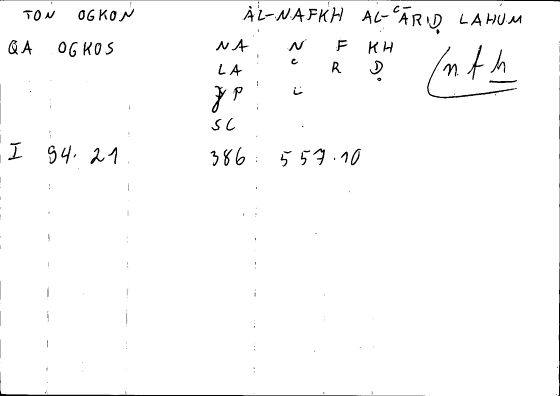 TON OGKON AL-NAFKH AL-ʿĀRIḌ LAHUM
QA OGKOS NA N F KH nfh
LA ʿ R Ḍ
P L
SC
I 94.21 386 557.10